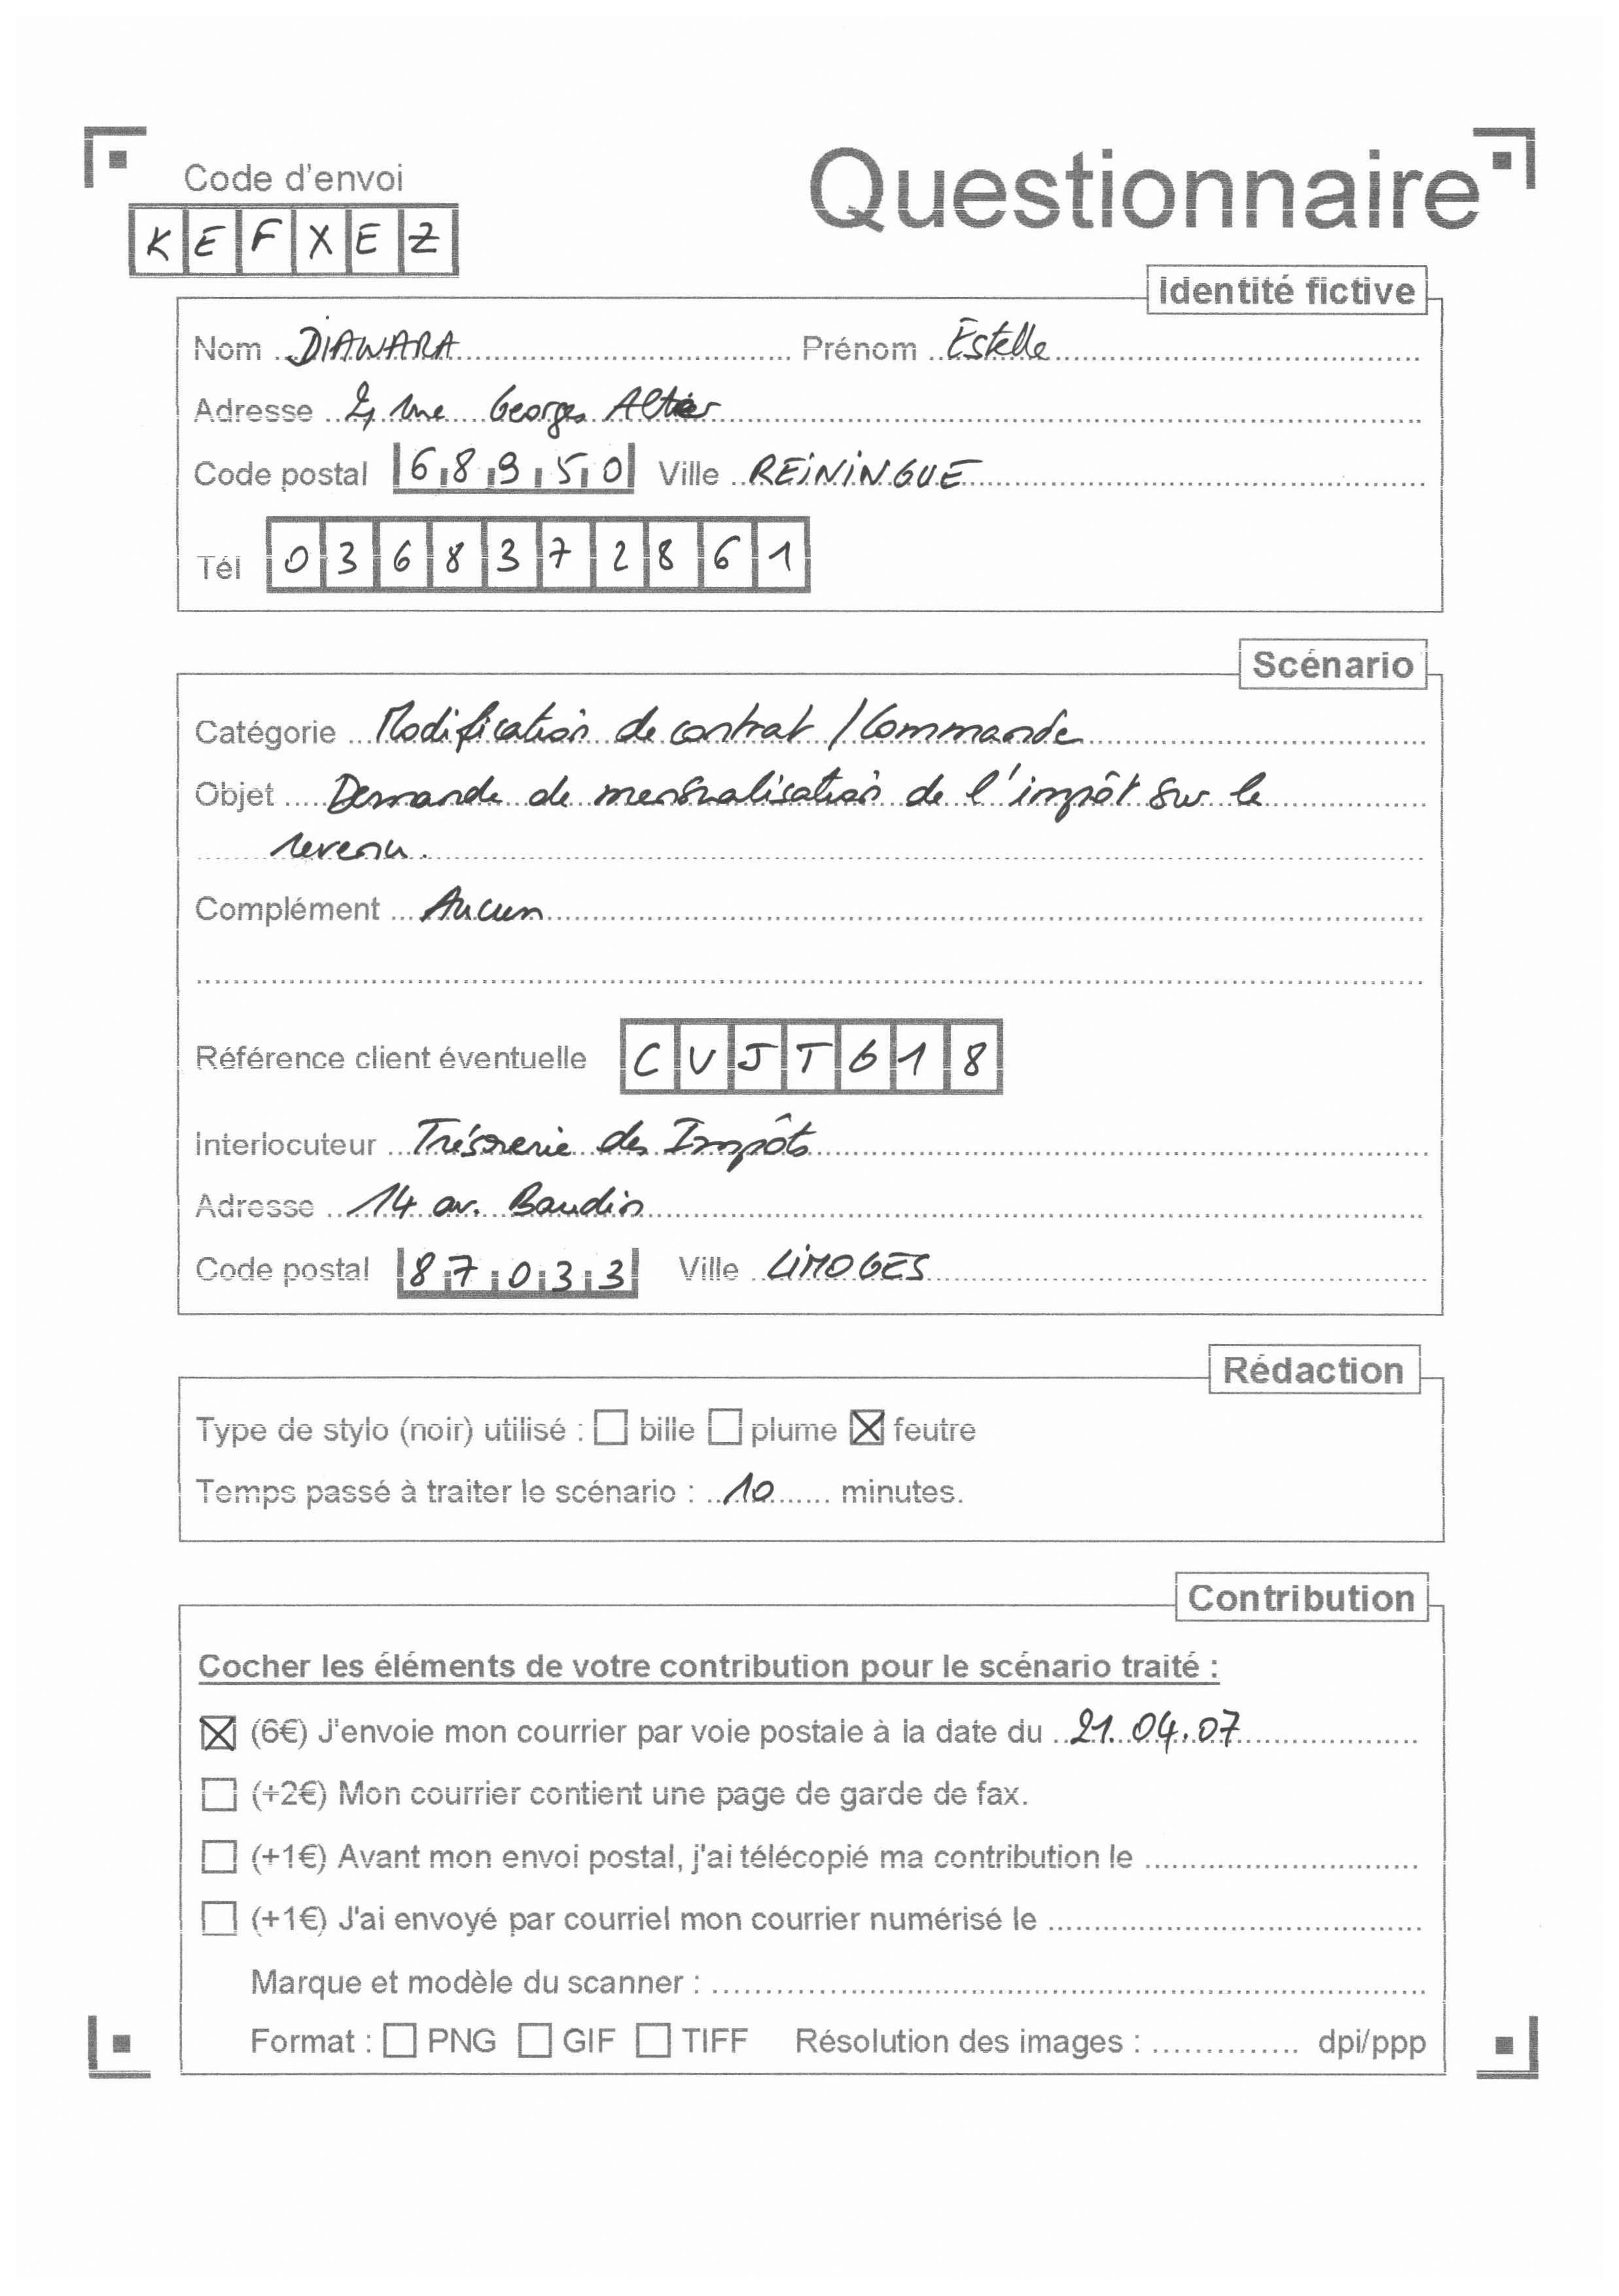 Code d'envoi
Questionnaire
K E F X E Z
Identité fictive
Nom DIAWARA Prénom Estelle
Adresse rue Georges
Code postal 68950 Ville REININGUE
Tél 0368372861
Scénario
Catégorie Modification de contrat / Commande
Objet Demande de mensualisation de l'impôt sur le
revenu.
Complément Aucun
Référence client éventuelle CVJT618
Interlocuteur Trésorerie des Impôts
Adresse 14 av. Baudin
Code postal 87033 Ville LIMOGES
Rédaction
Type de stylo (noir) utilisé : ☐ bille ☐ plume ☒ feutre
Temps passé à traiter le scénario : 10 minutes.
Contribution
Cocher les éléments de votre contribution pour le scénario traité :
☒ (6€) J'envoie mon courrier par voie postale à la date du 21.04.07
☐ (+2€) Mon courrier contient une page de garde de fax.
☐ (+1€) Avant mon envoi postal, j'ai télécopié ma contribution le
☐ (+1€) J'ai envoyé par courriel mon courrier numérisé le
Marque et modèle du scanner :
Format : ☐ PNG ☐ GIF ☐ TIFF Résolution des images : dpi/ppp